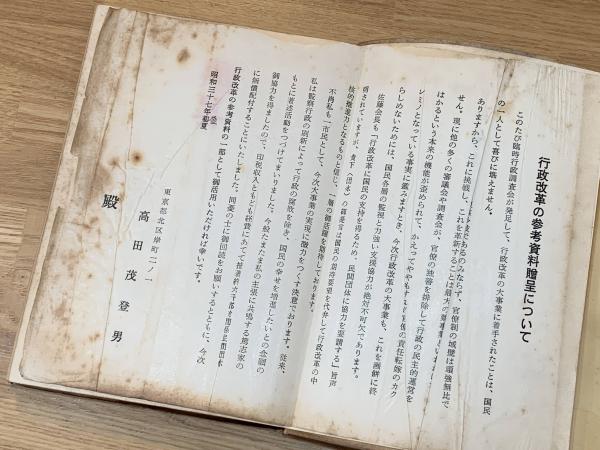 行政改革の参考資料贈呈について
このたび臨時行政調査会が発足して、行政改革の大事業に着手されたことは、国民
の一人として喜びに堪えません。
ありますから、これに挑戦し、これを革新することは
せん。現に他の多くの審議会や調査会が、官僚の独善を排除して行政の民主的運営を
はかるという本来の機能が歪められて、かえって
レミノとなっている事実に鑑みますとき、今次行政改革の大事業も、これを画餅に終
らしめないためには、国民各層の監視と力強い支援協力が絶対不可欠であります。
佐藤会長も「行政改革に国民の支持を得るため、民間団体に協力を要請する」旨声
明されていますが、貴下
不肖私も一市民として、今次大事業の実現に微力をつくす決意であります。従来、
私は監察行政の刷新によって行政の腐敗を除き、国民の幸せを増進したいとの念願の
もとに著述活動をつづけてまいりました。今般たまたま私の主張に共鳴する篤志家の
御協力を得ましたので、印税収入ともども
に無償配付することにいたしました。同憂の士に御回読をお願いするとともに、今次
行政改革の参考資料の一部として御活用いただければ幸いです。
昭和三十七年初夏
東京都北区岸町二ノ一
高田茂登男
殿